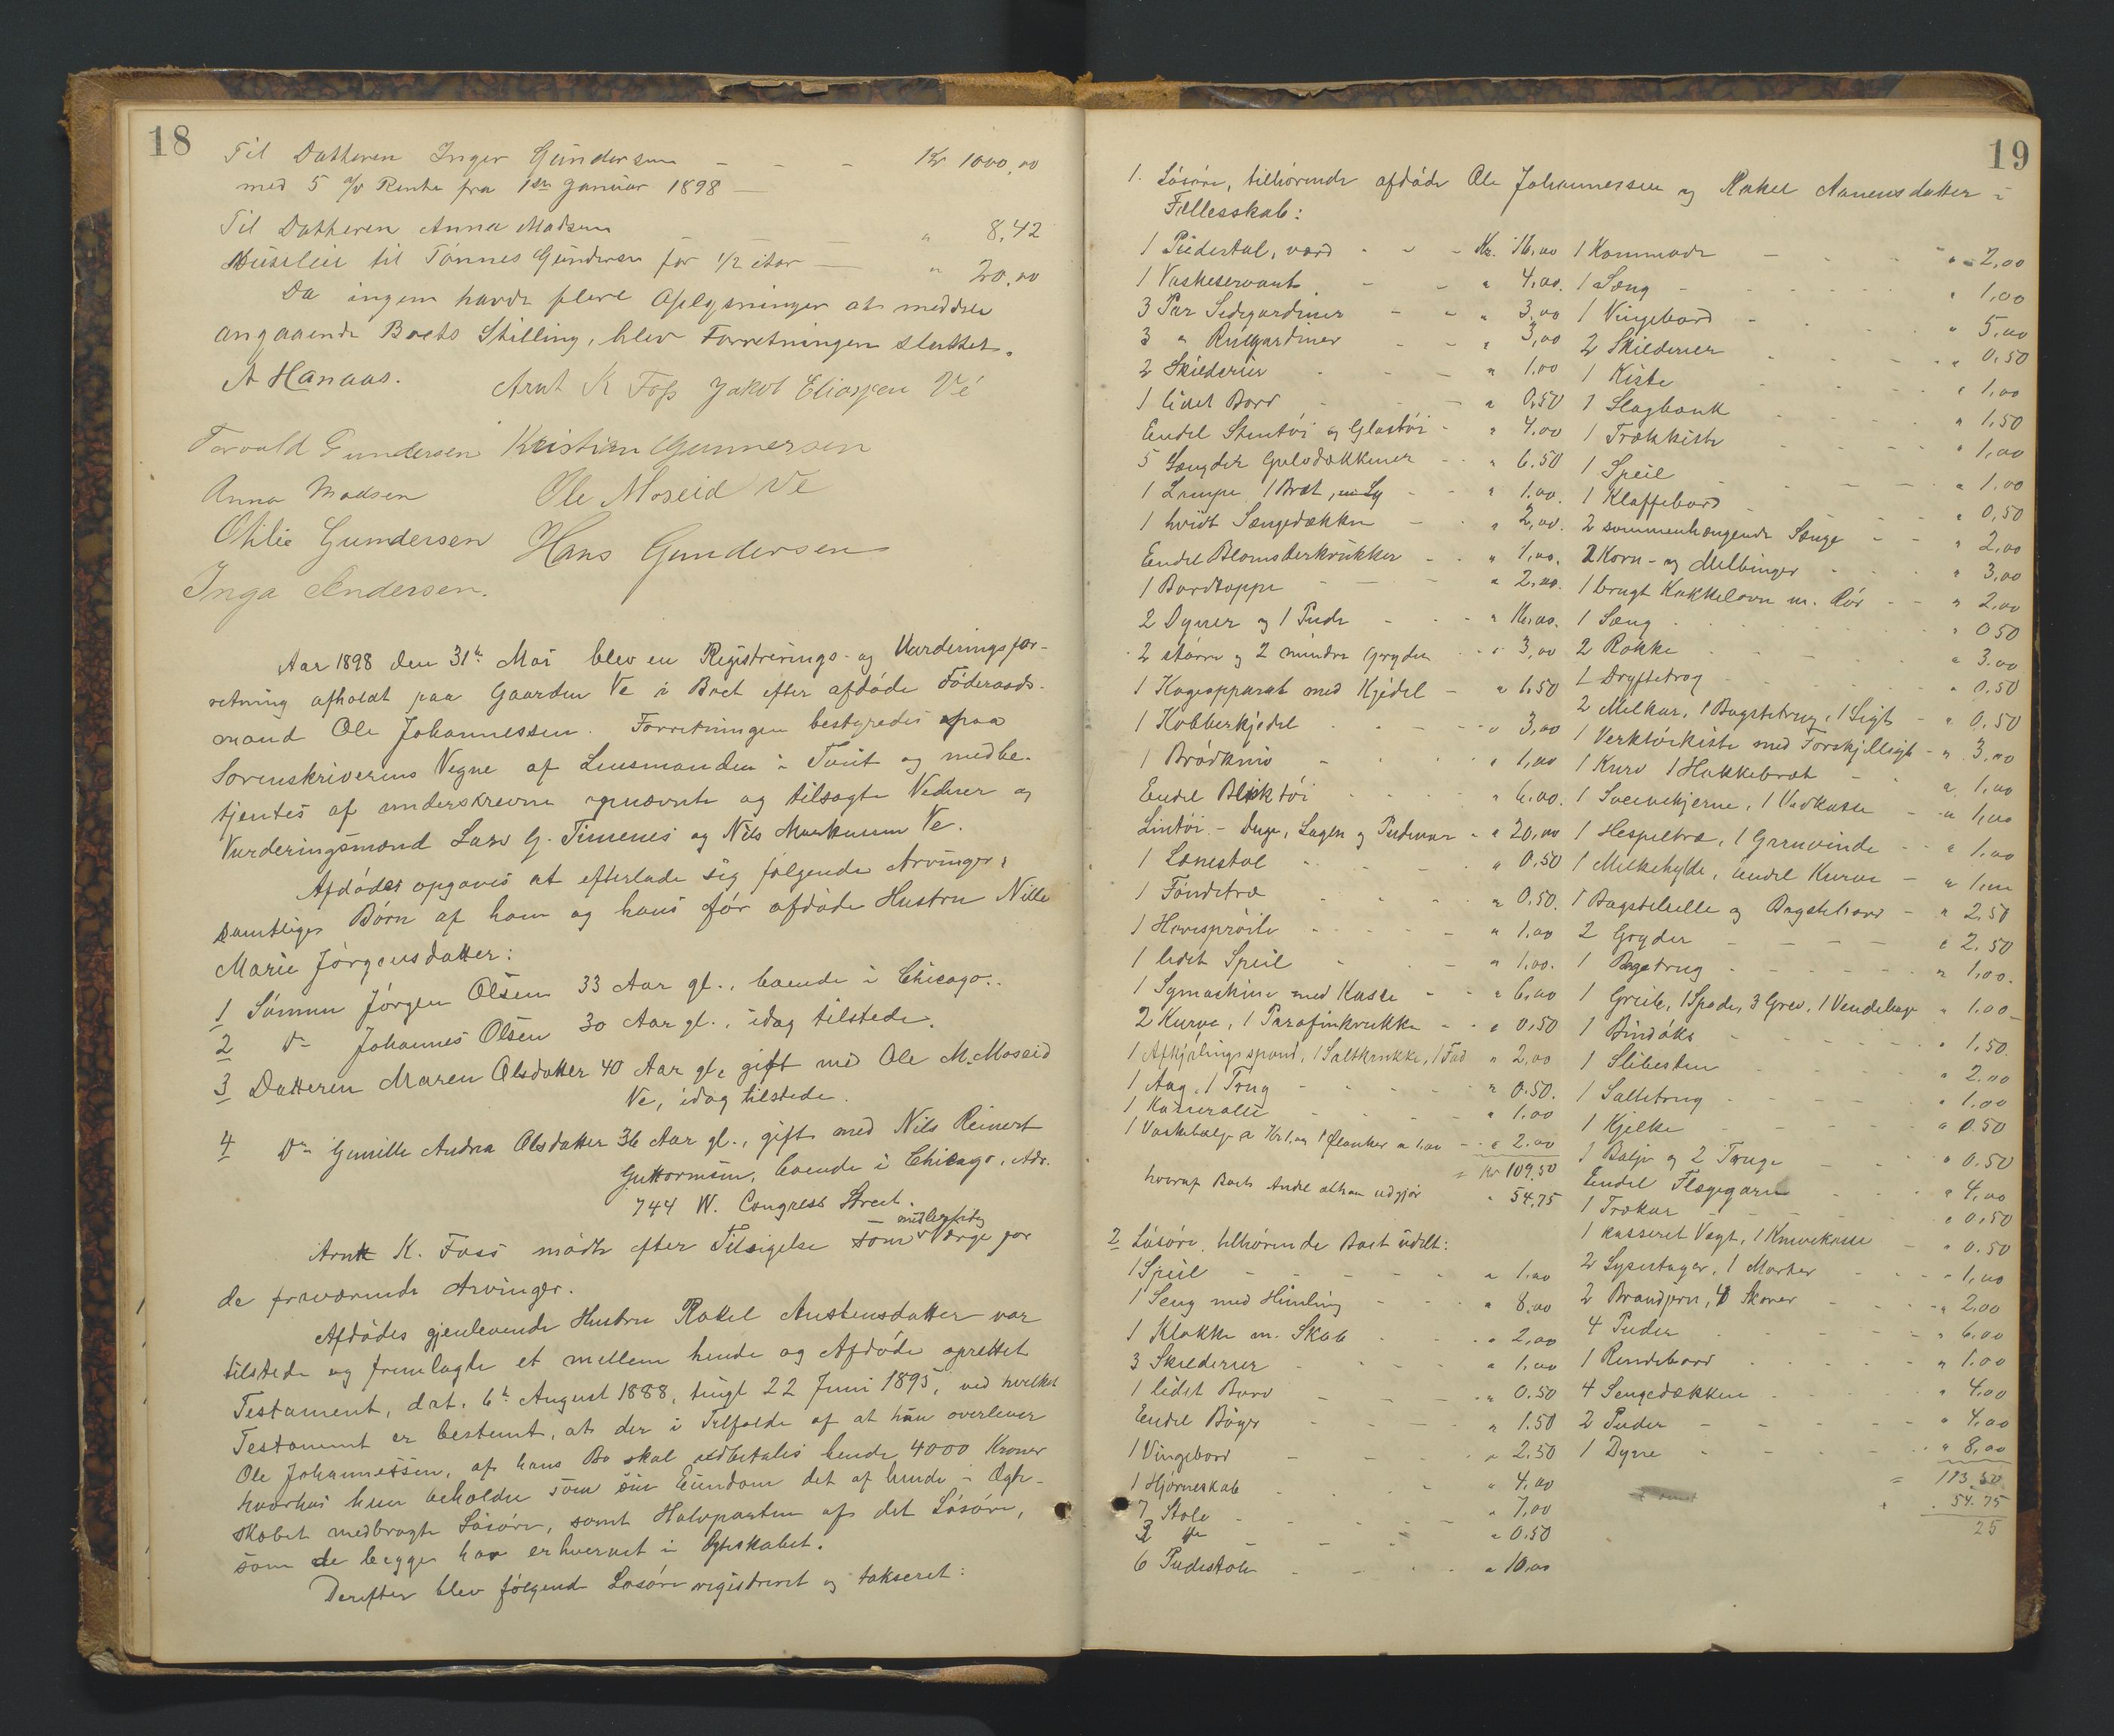 18
Til Datteren Inger Gundersen - - - Kr 1000,00
med 5 % Rente fra 1ste Januar 1898 —
Til Datteren Anna Madsen " 8,42
Husleie til Tønnes Gundersen for 1/2 Aar — " 20,00
Da ingen havde flere Oplysninger at meddele
angaaende Boets Stilling, blev Forretningen sluttet.
A Hanaas. Arnt K Foss Jakob Eliassen Vé
Torvald Gundersen Kristian Gunnersen
Anna Madsen Ole Moseid Ve
Otilie Gundersen Hans Gundersen
Inga Andersen.
Aar 1898 den 31te Mai blev en Registrerings- og Vurderingsfor-
retning afholdt paa Gaarden Ve i Boet efter afdøde Føderaads-
mand Ole Johannessen. Forretningen bestyredes paa
Sorenskriverens Vegne af Lensmanden i Tveit og medbe-
tjentes af underskrevne opnævnte og tilsagte Vidner og
Vurderingsmænd Lars G. Timenes og Nils Markussen Ve.
Afdødes opgaves at efterlade sig følgende Arvinger,
samtlige Børn af ham og hans før afdøde Hustru Nille
Marie Jørgensdatter:
1 Sønnen Jørgen Olsen 33 Aar gl., boende i Chicago.
2 Do Johannes Olsen 30 Aar gl., idag tilstede.
3 Datteren Maren Olsdatter 40 Aar gl, gift med Ole M. Moseid
Ve, idag tilstede.
4 Do Gunille Andrea Olsdatter 36 Aar gl., gift med Nils Reinert
Guttormsen, boende i Chicago, Adr.
744 W. Congress Street.
midlertidig
Arnt K. Foss mødte efter Tilsigelse som Værge for
de fraværende Arvinger.
Afdødes gjenlevende Hustru Rakel Austensdatter var
tilstede og fremlagte et mellem hende og Afdøde oprettet
Testament, dat. 6te August 1888, tingl 22 Juni 1895, ved hvilket
Testament er bestemt, at der i Tilfælde af at hun overlever
Ole Johannessen, af hans Bo skal udbetales hende 4000 Kroner
hvorhos hun beholder som sin Eiendom det af hende i Ægte-
skabet medbragte Løsøre, samt Halvparten af det Løsøre,
som de begge har erhvervet i Ægteskabet.
Derefter blev følgende Løsøre registreret og takseret:
19
1. Løsøre, tilhørende afdøde Ole Johannessen og Rakel Aanensdatter i
Fællesskab:
1 Piedestal, værd - - - Kr. 16,00
1 Vaskeservant - - " 4,00.
3 Par Sidegardiner - - " 3,00
3 " Rulgardiner - - " 3,00
2 Skilderier - - " 1.00
1 lidet Bord - " 0,50
Endel Stentøi og Glastøi - " 4,00
5 Længder Gulvdækkener - - " 6.50
1 Lampe, 1 Bræt - " 1.00.
1 hvidt Sængedække - - " 2,00.
Endel Blomsterkrukker - - " 1,00.
1 Bordtoppe - - - " 2,00.
2 Dyner og 1 Pude - - - " 16,00.
2 større og 2 mindre Gryder - - " 3,00
1 Kogeapparat med Kjedel - " 1,50
1 Kobberkjedel - - - " 3,00
1 Brødkniv - - - " 1,00
Endel Bliktøi - - - " 6,00.
Lintøi - Duge, Lagen og Pudevar - " 20,00
1 Lænestol - - - " 0.50
1 Tøndetræ - - - " 0.50.
1 Havesprøite - - - " 1,00
1 lidet Speil - - - " 1,00.
1 Symaskine med Kasse - - " 6,00
2 Kurve, 1 Parafinkrukke - - " 0,50
1 Afkjølingsspand, 1 Saltkrukke, 1 Fad " 2,00
1 Aag, 1 Trug - - - " 0.50.
1 Kasserolle - - - " 1.00
1 Vaskebalje a Kr 1,00 1 Planker a 1.00 - " 2.00
= Kr 109,50
hvoraf Boets Andel altsaa udgjør " 54,75
2 Løsøre, tilhørende Boet udelt:
1 Speil - - - " 1.00
1 Seng med Himling - - " 8,00
1 Klokke m. Skab - - " 2,00
3 Skilderier - - - " 1,00
1 lidet Bord - - - " 0.50
Endel Bøger - - - " 1.50
1 Vingebord - - - " 2.50
1 Hjørneskab - - - " 4.00
7 Stole - - - " 7,00
3 do - - - " 0.50
6 Pudestole - - - " 10,00
1 Kommode - - - " 2,00
1 Sæng - - - " 1,00
1 Vingebord - - - " 5,00
2 Skilderier - - - " 0,50
1 Kiste - - - " 1,00
1 Slagbænk - - - " 1,50
1 Trækkiste - - - " 1,00
1 Speil - - - " 1.00
1 Klaffebord - - - " 0,50
2 sammenhængende Sænge - - " 2,00
2 Korn- og Melbinger - - " 3,00
1 brugt Kakkelovn m. Rør - - " 2,00
1 Sæng - - - " 0 50
2 Rokke - - - " 3.00
1 Dryftetrog - - - " 0.50
2 Melkar, 1 Bagstetrug, 1 Sigt - " 0.50
1 Verktøikiste med Forskjelligt - " 3,00
1 Kurv 1 Hakkebræt - - " 1,00
1 Sveivekjerne, 1 Vedkasse - " 1,00
1 Hespeltræ, 1 Garnvinde - - " 1.00
1 Melkehylde, endel Kurve - " 1,00
1 Bagstehelle og Bagstebord - " 2,50
2 Gryder - - - " 2.50
1 Bagetrug - - - " 1,00.
1 Greib, 1 Spade, 3 Grev, 1 " 1.00
1 Bindøks - - - " 1,50.
1 Slibesten - - - " 2.00
1 Saltetrug - - - " 1.00
1 Kjelke - - - " 0.50
1 Balje og 2 Truge - - " 0.50
Endel Flægegarn - - - " 4,00
1 Trækar - - - " 0,50
1 kasseret Vægt, 1 Knivekasse - " 0.50
2 Lysestager, 1 Morter - - " 1,00
2 Brandjern, 4 Skover - - " 2.00
4 Puder - - - " 6.00
1 Rundebord - - - " 1.00
4 Sengedækken - - - " 4.00
2 Puder - - - " 4.00
1 Dyne - - - " 8,00
= 113.50
54.75
25